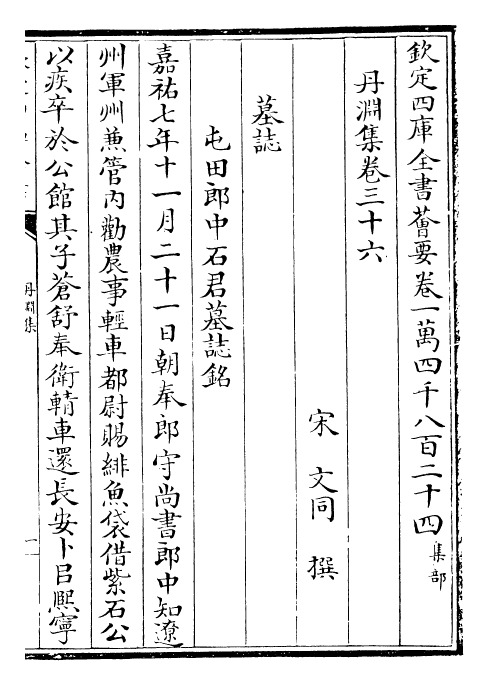 欽定四庫全書薈要卷一萬四千八百二十四 集部
丹淵集卷三十六
宋 文同 撰
墓誌
屯田郎中石君墓誌銘
嘉祐七年十一月二十一日朝奉郎守尚書郎中知遼
州軍州兼管內勸農事輕車都尉賜緋魚袋借紫石公
以疾卒於公館其子蒼舒奉衛輤車還長安卜吕熙寧
丹淵集
一